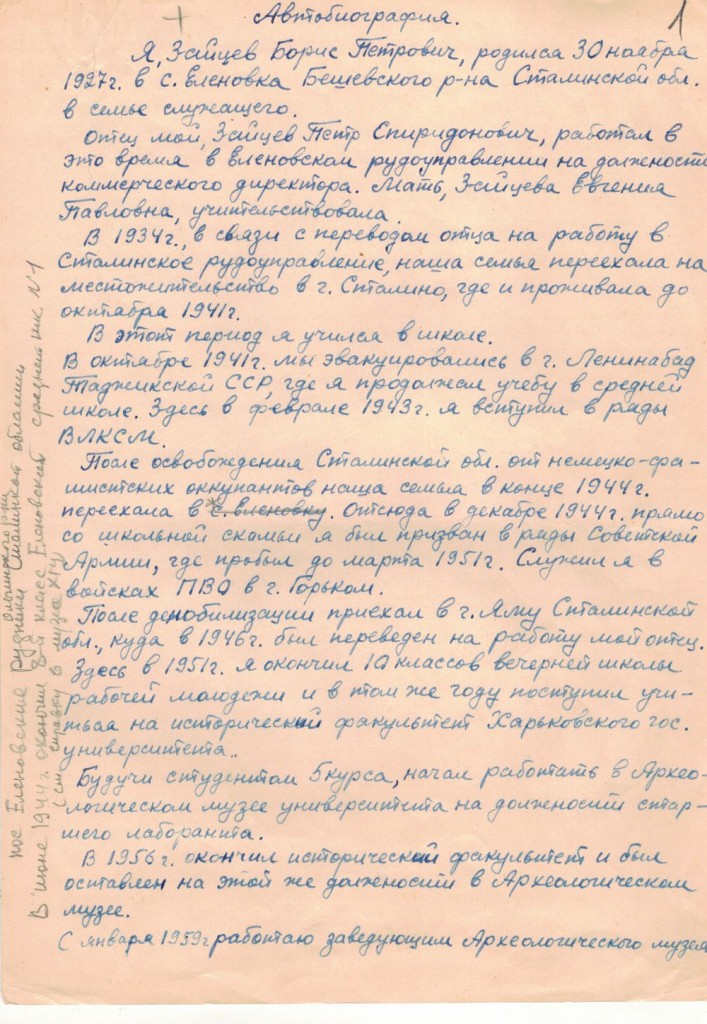 Автобиография.
1
Я, Зайцев Борис Петрович, родился 30 ноября
1927г. в с. Еленовка Бешевского р-на Сталинской обл.
в семье служащего.
Отец мой, Зайцев Петр Спиридонович, работал в
это время в Еленовском рудоуправлении на должности
коммерческого директора. Мать, Зайцева Евгения
Павловна, учительствовала.
В 1934г., в связи с переводом отца на работу в
Сталинское рудоуправление, наша семья переехала на
местожительство в г. Сталино, где и проживала до
октября 1941г.
В этот период я учился в школе.
В октябре 1941г. мы эвакуировались в г. Ленинабад
Таджикской ССР, где я продолжал учебу в средней
школе. Здесь в феврале 1943г. я вступил в ряды
ВЛКСМ.
После освобождения Сталинской обл. от немецко-фа-
шистских оккупантов наша семья в конце 1944г.
переехала в с. Еленовку. Отсюда в декабре 1944г. прямо
со школьной скамьи я был призван в ряды Советской
Армии, где пробыл до марта 1951г. Служил я в
войсках ПВО в г. Горьком.
После демобилизации приехал в г. Яму Сталинской
обл., куда в 1946г. был переведен на работу мой отец.
Здесь в 1951г. я окончил 10 классов вечерней школы
рабочей молодежи и в том же году поступил учи-
ться на исторический факультет Харьковского гос.
университета.
Будучи студентом 5 курса, начал работать в Архео-
логическом музее университета на должности стар-
шего лаборанта.
В 1956г. окончил исторический факультет и был
оставлен на этой же должности в Археологическом
музее.
С января 1959г работаю заведующим Археологического музея
пос. Еленовские рудники Сталинской области
Ольгинского р-на
В июне 1944г. окончил 8-й класс Еленовской средней шк N-1
(см. справку в музее ХГУ)